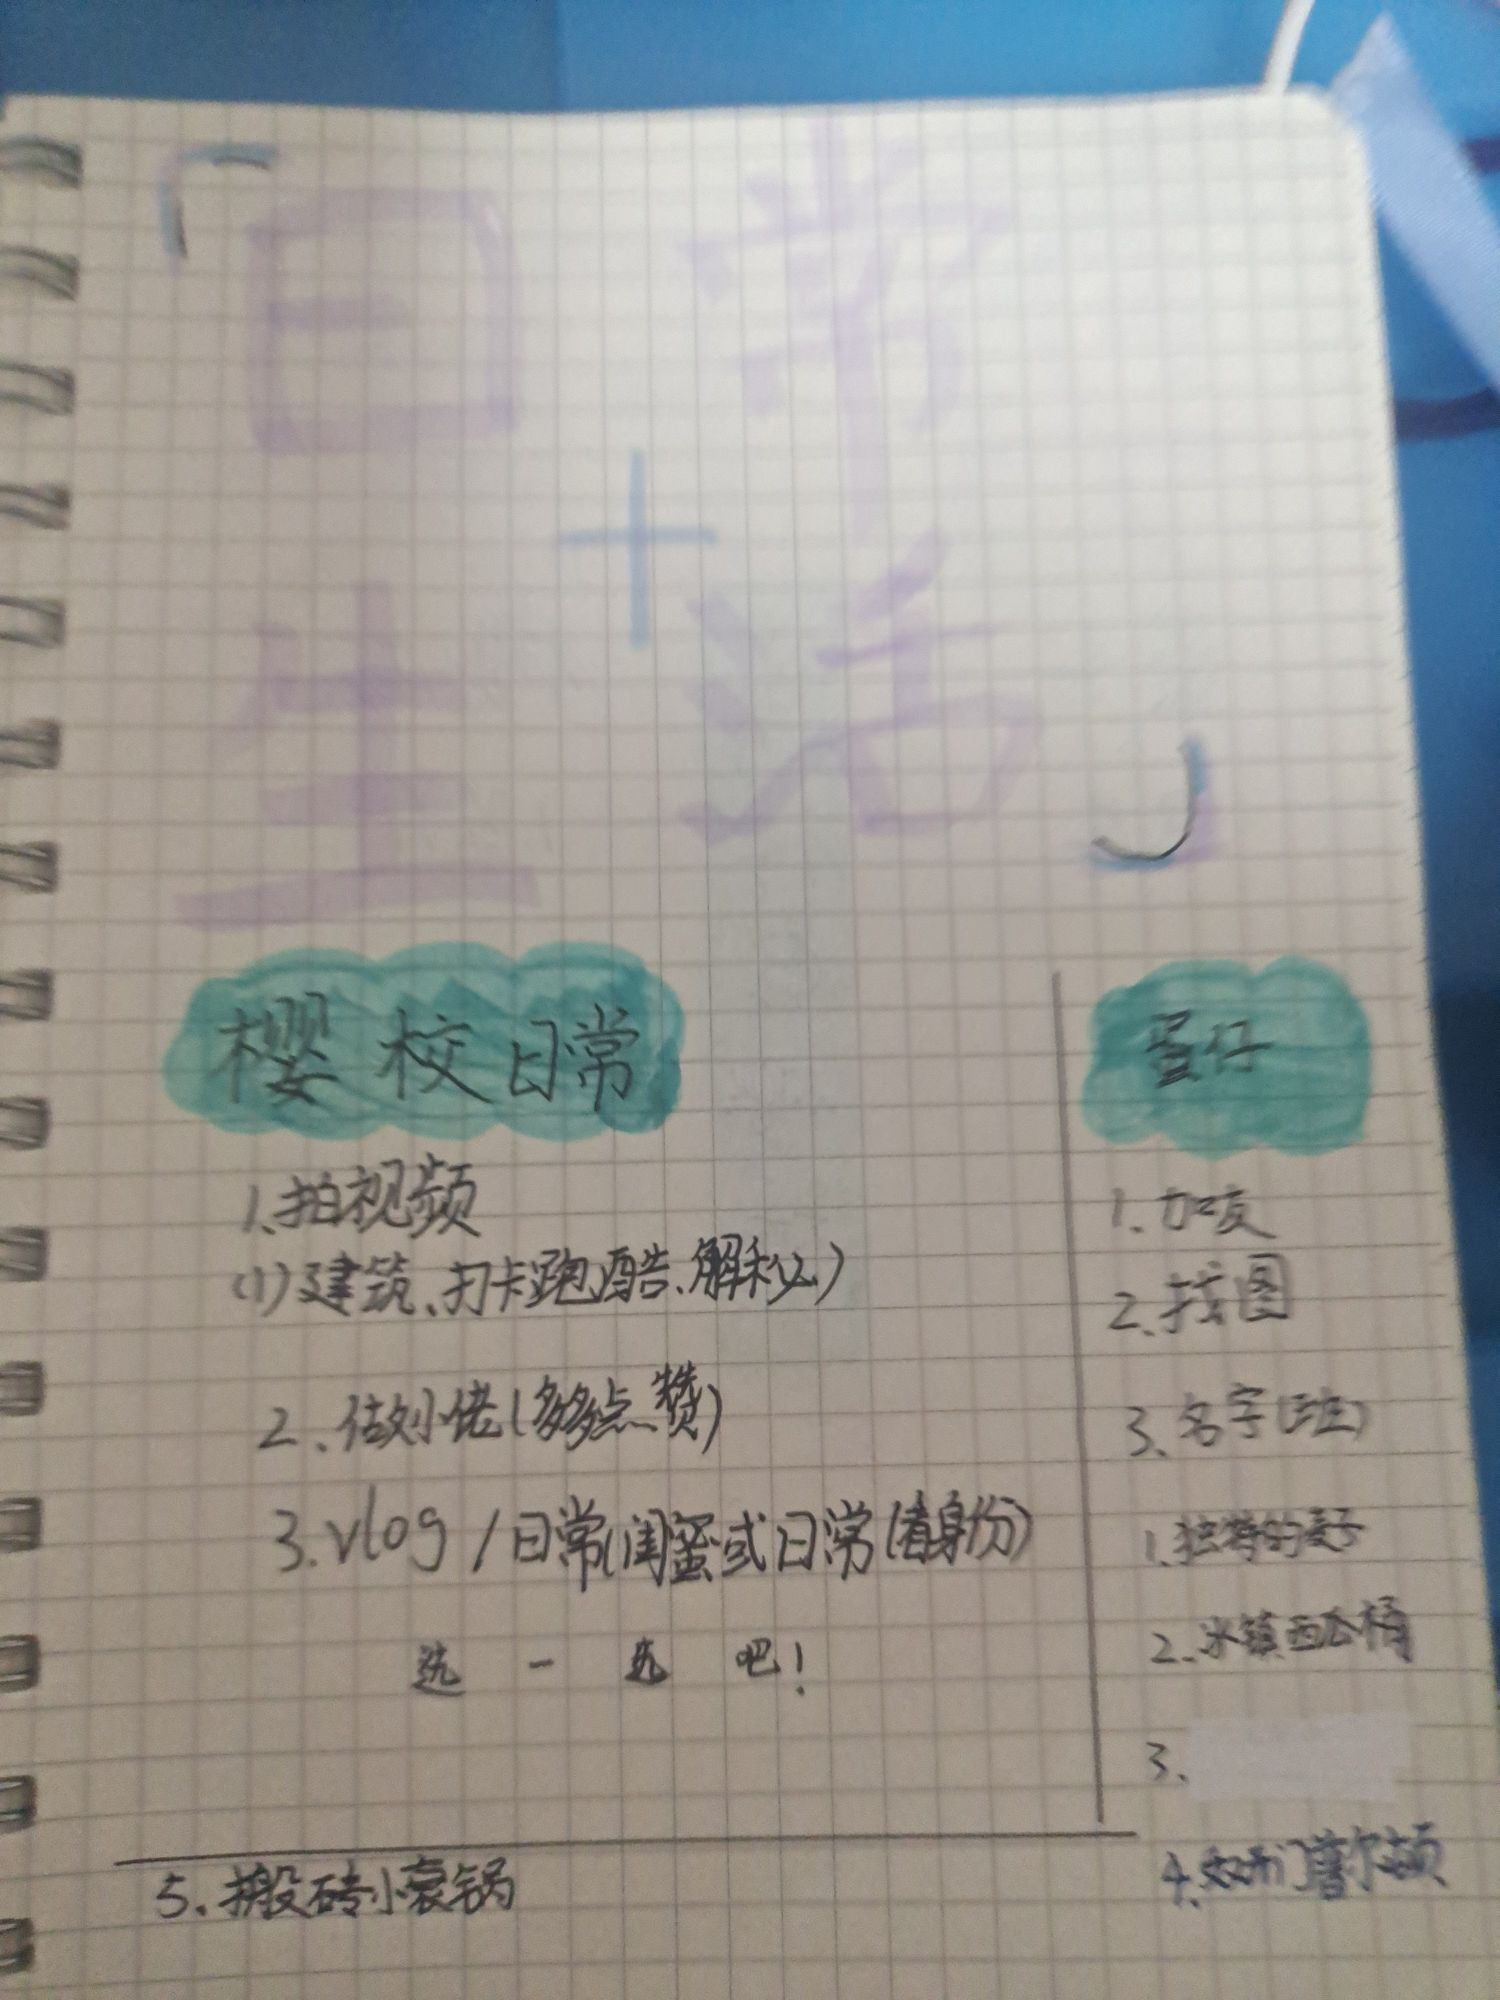 「日 常
+
生 活」
樱校日常
1.拍视频
(1)建筑、打卡跑酷、解秘)
2、做小佬(多多点赞)
3.vlog/日常(闺蜜或日常(看身份)
选一选吧!
蛋仔
1.加友
2.找图
3.名字(班)
1.独特的
2.冰镇西瓜桶
3.
4.
5.搬砖小锅